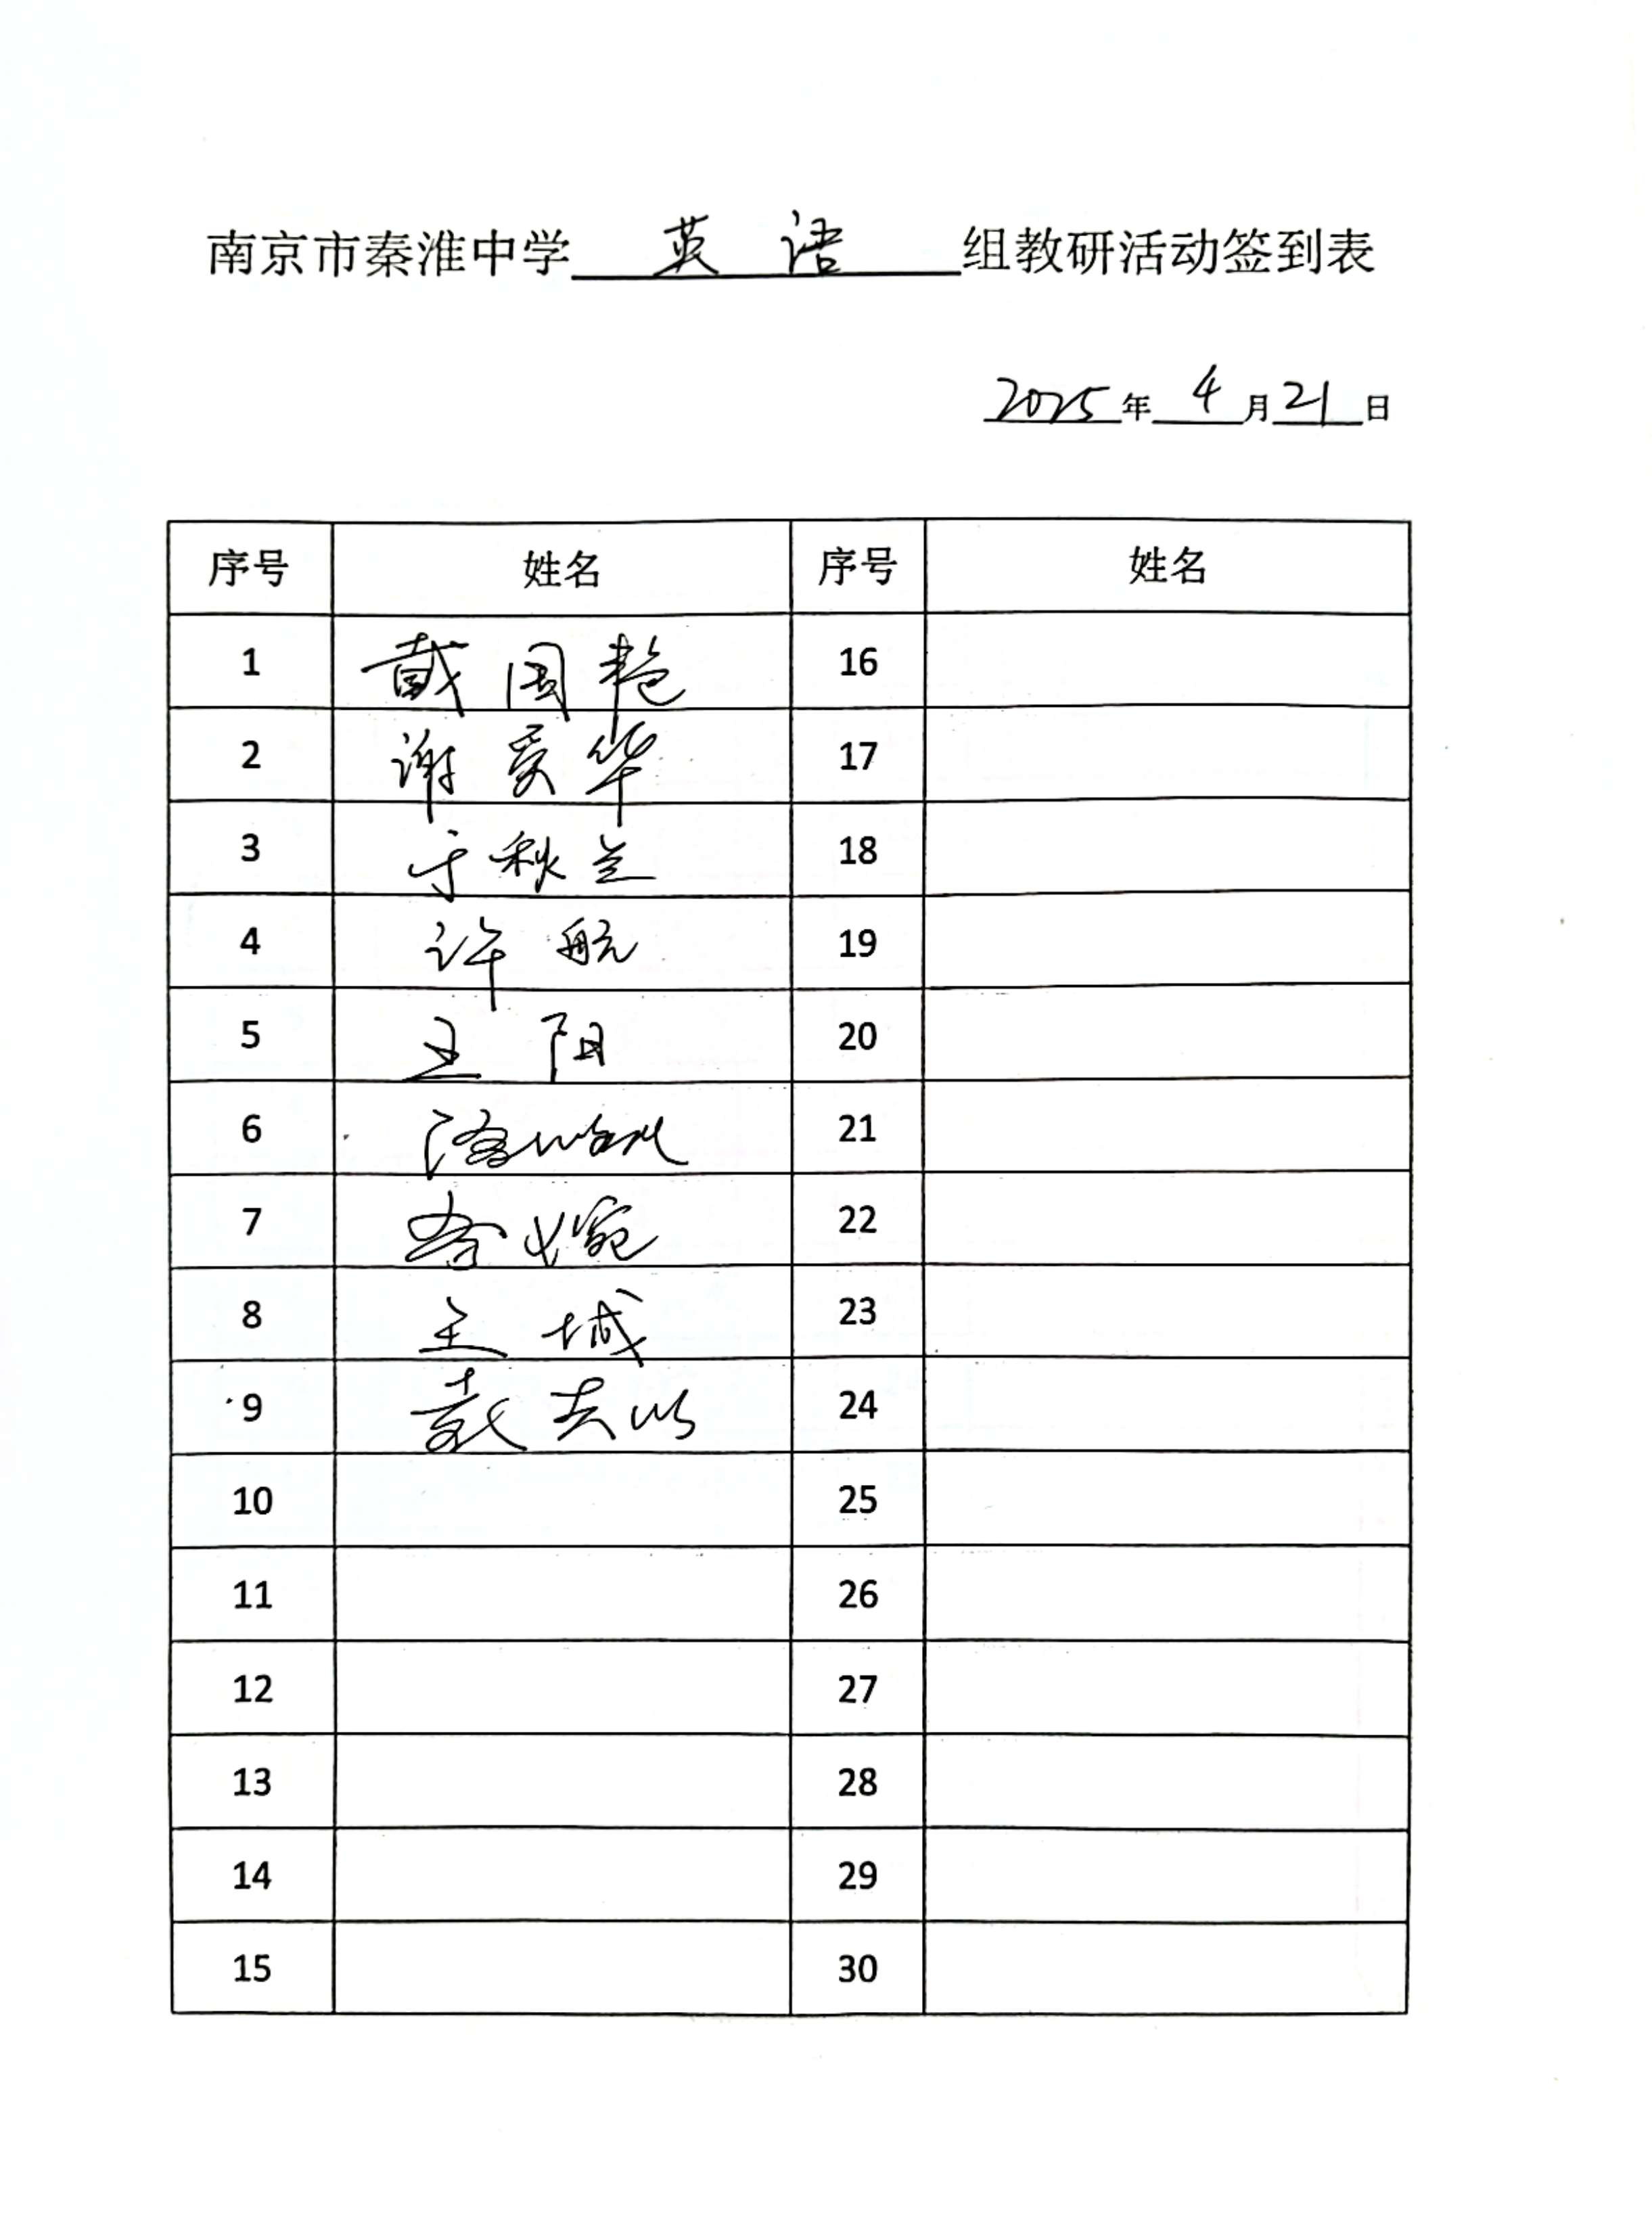 南京市秦淮中学 英语 组教研活动签到表
2025年 4月21日
序号 姓名 序号 姓名
1 戴国艳 16
2 谢爱华 17
3 于秋兰 18
4 许航 19
5 王阳 20
6 21
7 婉 22
8 王城 23
9 戴 24
10 25
11 26
12 27
13 28
14 29
15 30